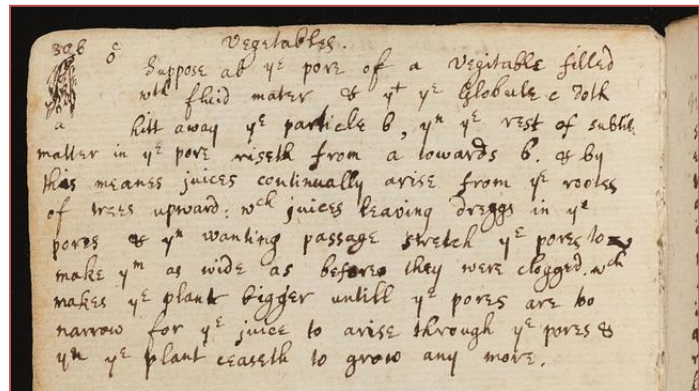 306 Vegetables.
c
b
Suppose ab yᵉ pore of a Vegitable filled
wth fluid mater & yt yᵉ Globule c doth
a hitt away yᵉ particle b, yn yᵉ rest of subtile
matter in yᵉ pore riseth from a towards b. & by
this meanes juices continually arise from yᵉ roots
of trees upward: wch juices leaving dreggs in yᵉ
pores & yn wanting passage stretch yᵉ pores to
make ym as wide as before they were clogged. wch
makes yᵉ plant bigger untill yᵉ pores are too
narrow for yᵉ juice to arise through yᵉ pores &
yn yᵉ plant ceaseth to grow any more.